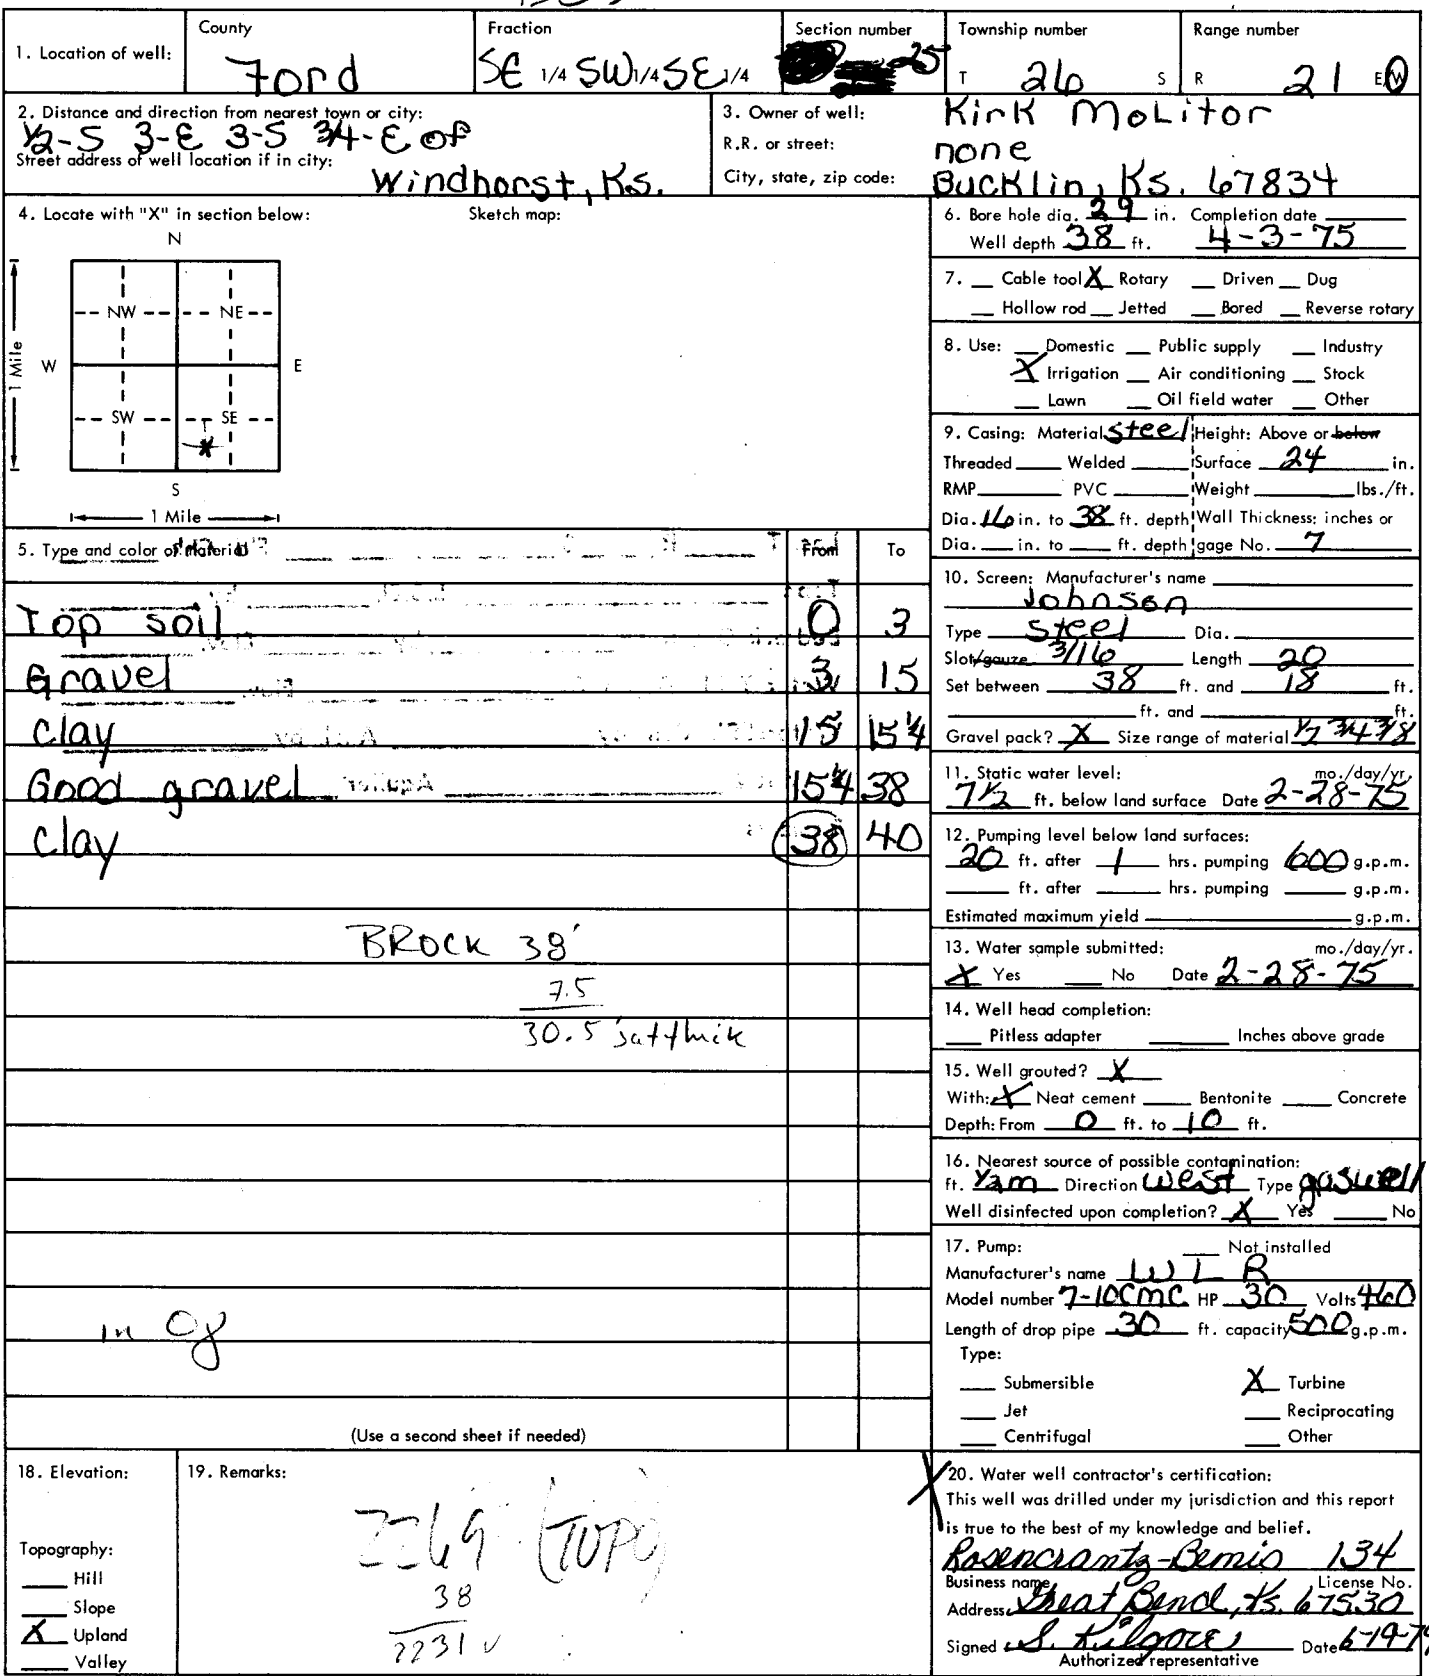 County Fraction Section number Township number Range number
1. Location of well: Ford SE 1/4 SW 1/4 SE 1/4 25 T 26 S R 21 E W
2. Distance and direction from nearest town or city:
1/2-S 3-E 3-S 3/4-E of
Street address of well location if in city:
Windhorst, Ks.
3. Owner of well: Kirk Molitor
R.R. or street: none
City, state, zip code: Bucklin, Ks. 67834
4. Locate with "X" in section below: Sketch map:
N
NW NE
W E
SW SE
S
1 Mile
1 Mile
5. Type and color of material From To
Top soil 0 3
Gravel 3 15
Clay 15 15 1/4
Good gravel 15 1/4 38
Clay 38 40
BROCK 38'
7.5
30.5' sat thick
in
(Use a second sheet if needed)
6. Bore hole dia. 29 in. Completion date
Well depth 38 ft. 4-3-75
7. Cable tool X Rotary Driven Dug
Hollow rod Jetted Bored Reverse rotary
8. Use: Domestic Public supply Industry
X Irrigation Air conditioning Stock
Lawn Oil field water Other
9. Casing: Material steel Height: Above or below
Threaded Welded Surface 24 in.
RMP PVC Weight lbs./ft.
Dia. 16 in. to 38 ft. depth Wall Thickness: inches or
Dia. in. to ft. depth gage No. 7
10. Screen: Manufacturer's name
Johnson
Type steel Dia.
Slot/gauze 3/16 Length 20
Set between 38 ft. and 18 ft.
ft. and ft.
Gravel pack? X Size range of material 1/2 3/4 3/8
11. Static water level: mo./day/yr.
7 1/2 ft. below land surface Date 2-28-75
12. Pumping level below land surfaces:
20 ft. after 1 hrs. pumping 600 g.p.m.
ft. after hrs. pumping g.p.m.
Estimated maximum yield g.p.m.
13. Water sample submitted: mo./day/yr.
X Yes No Date 2-28-75
14. Well head completion:
Pitless adapter Inches above grade
15. Well grouted? X
With: X Neat cement Bentonite Concrete
Depth: From 0 ft. to 10 ft.
16. Nearest source of possible contamination:
ft. 1/2 m Direction west Type gas well
Well disinfected upon completion? X Yes No
17. Pump: Not installed
Manufacturer's name WLR
Model number 7-10CMC HP 30 Volts 460
Length of drop pipe 30 ft. capacity 500 g.p.m.
Type:
Submersible X Turbine
Jet Reciprocating
Centrifugal Other
18. Elevation:
Topography:
Hill
Slope
X Upland
Valley
19. Remarks:
2269 (TOPO)
38
2231
20. Water well contractor's certification:
This well was drilled under my jurisdiction and this report
is true to the best of my knowledge and belief.
Rosencrantz-Bemis 134
Business name License No.
Address Great Bend, Ks. 67530
Signed S. Kilgore Date
Authorized representative